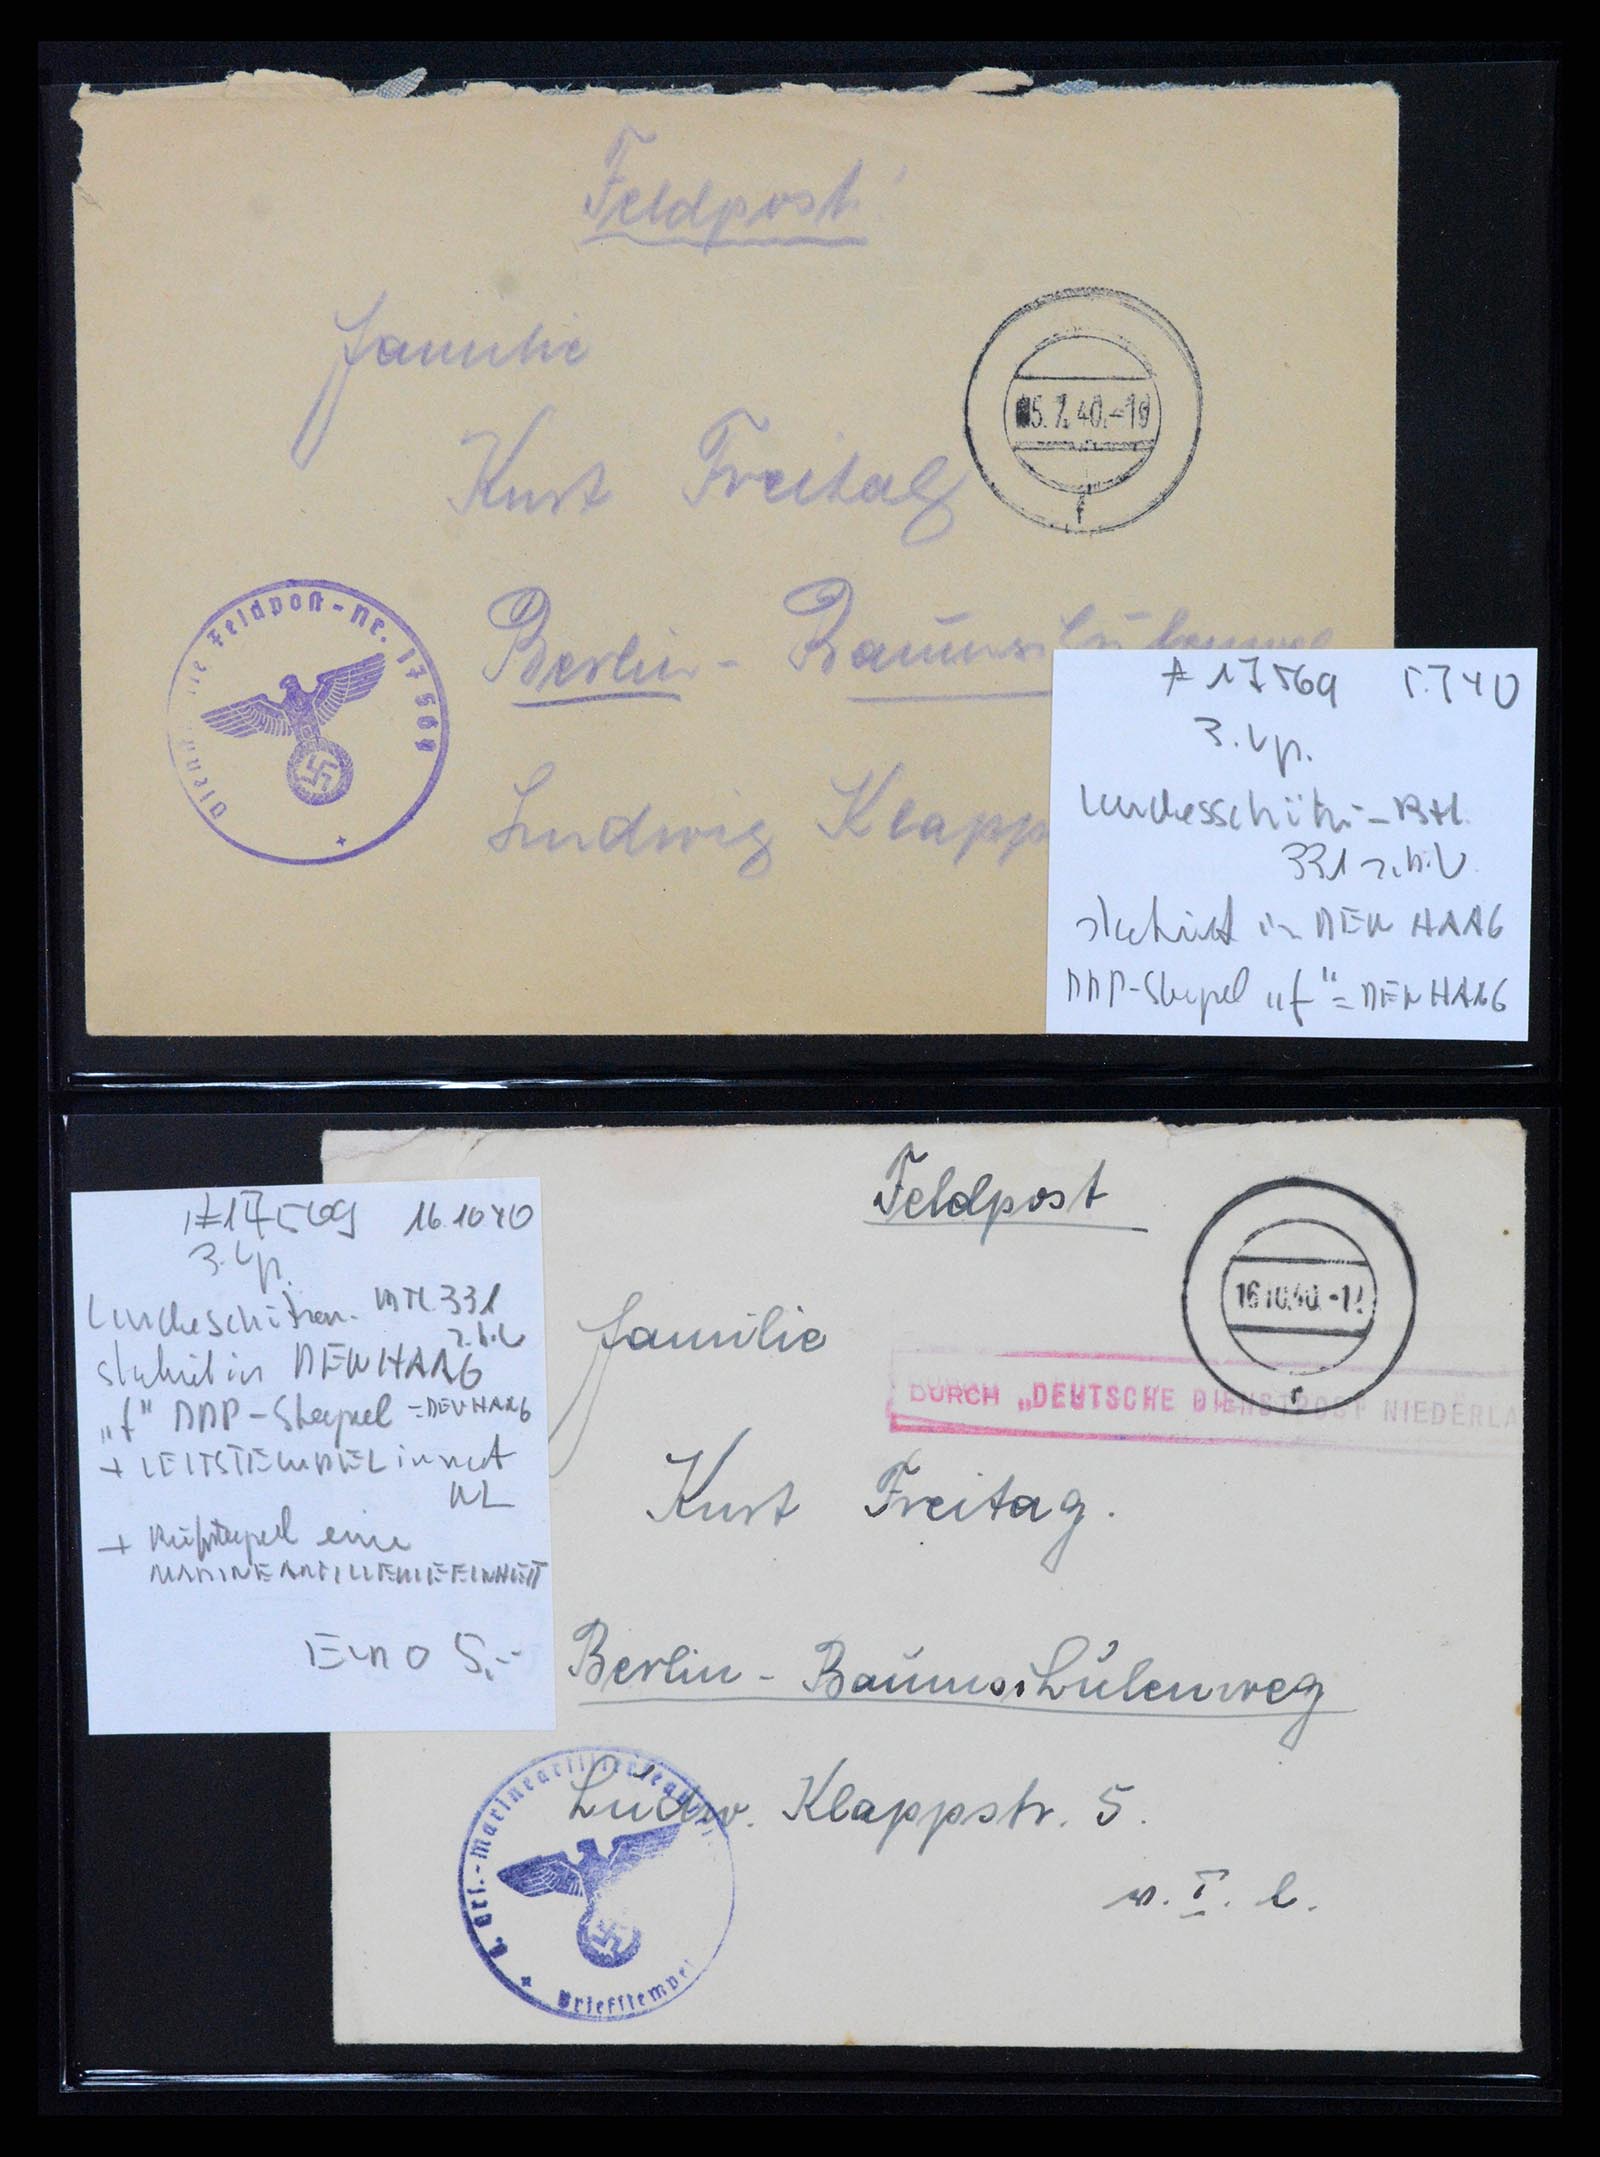 Feldpost
Familie
Kurt Freitag
Berlin - Baumschulenweg
Ludwig Klapp
5.7.40.-19
f
Feldpost-Nr. 17569
# 17569 5.7 40
3. Kp.
Landesschützen-Btl.
331 z.b.V.
stationiert in DEN HAAG
DDP-Stempel „f“ = DEN HAAG
Feldpost
Familie
Kurt Freitag.
Berlin - Baumschulenweg
Ludw. Klappstr. 5.
v. I. l.
16.10.40.-12
f
DURCH „DEUTSCHE DIENSTPOST NIEDERLA
Marineartillerieabteil.
Briefstempel
# 17569 16.10 40
3. Kp.
Landesschützen-BTL. 331
z.b.V
stationiert in DEN HAAG
„f“ DDP-Stempel = DEN HAAG
+ LEITSTEMPEL in rot
NL
+ Briefstempel einer
MARINEARTILLERIEEINHEIT
EURO 5,--